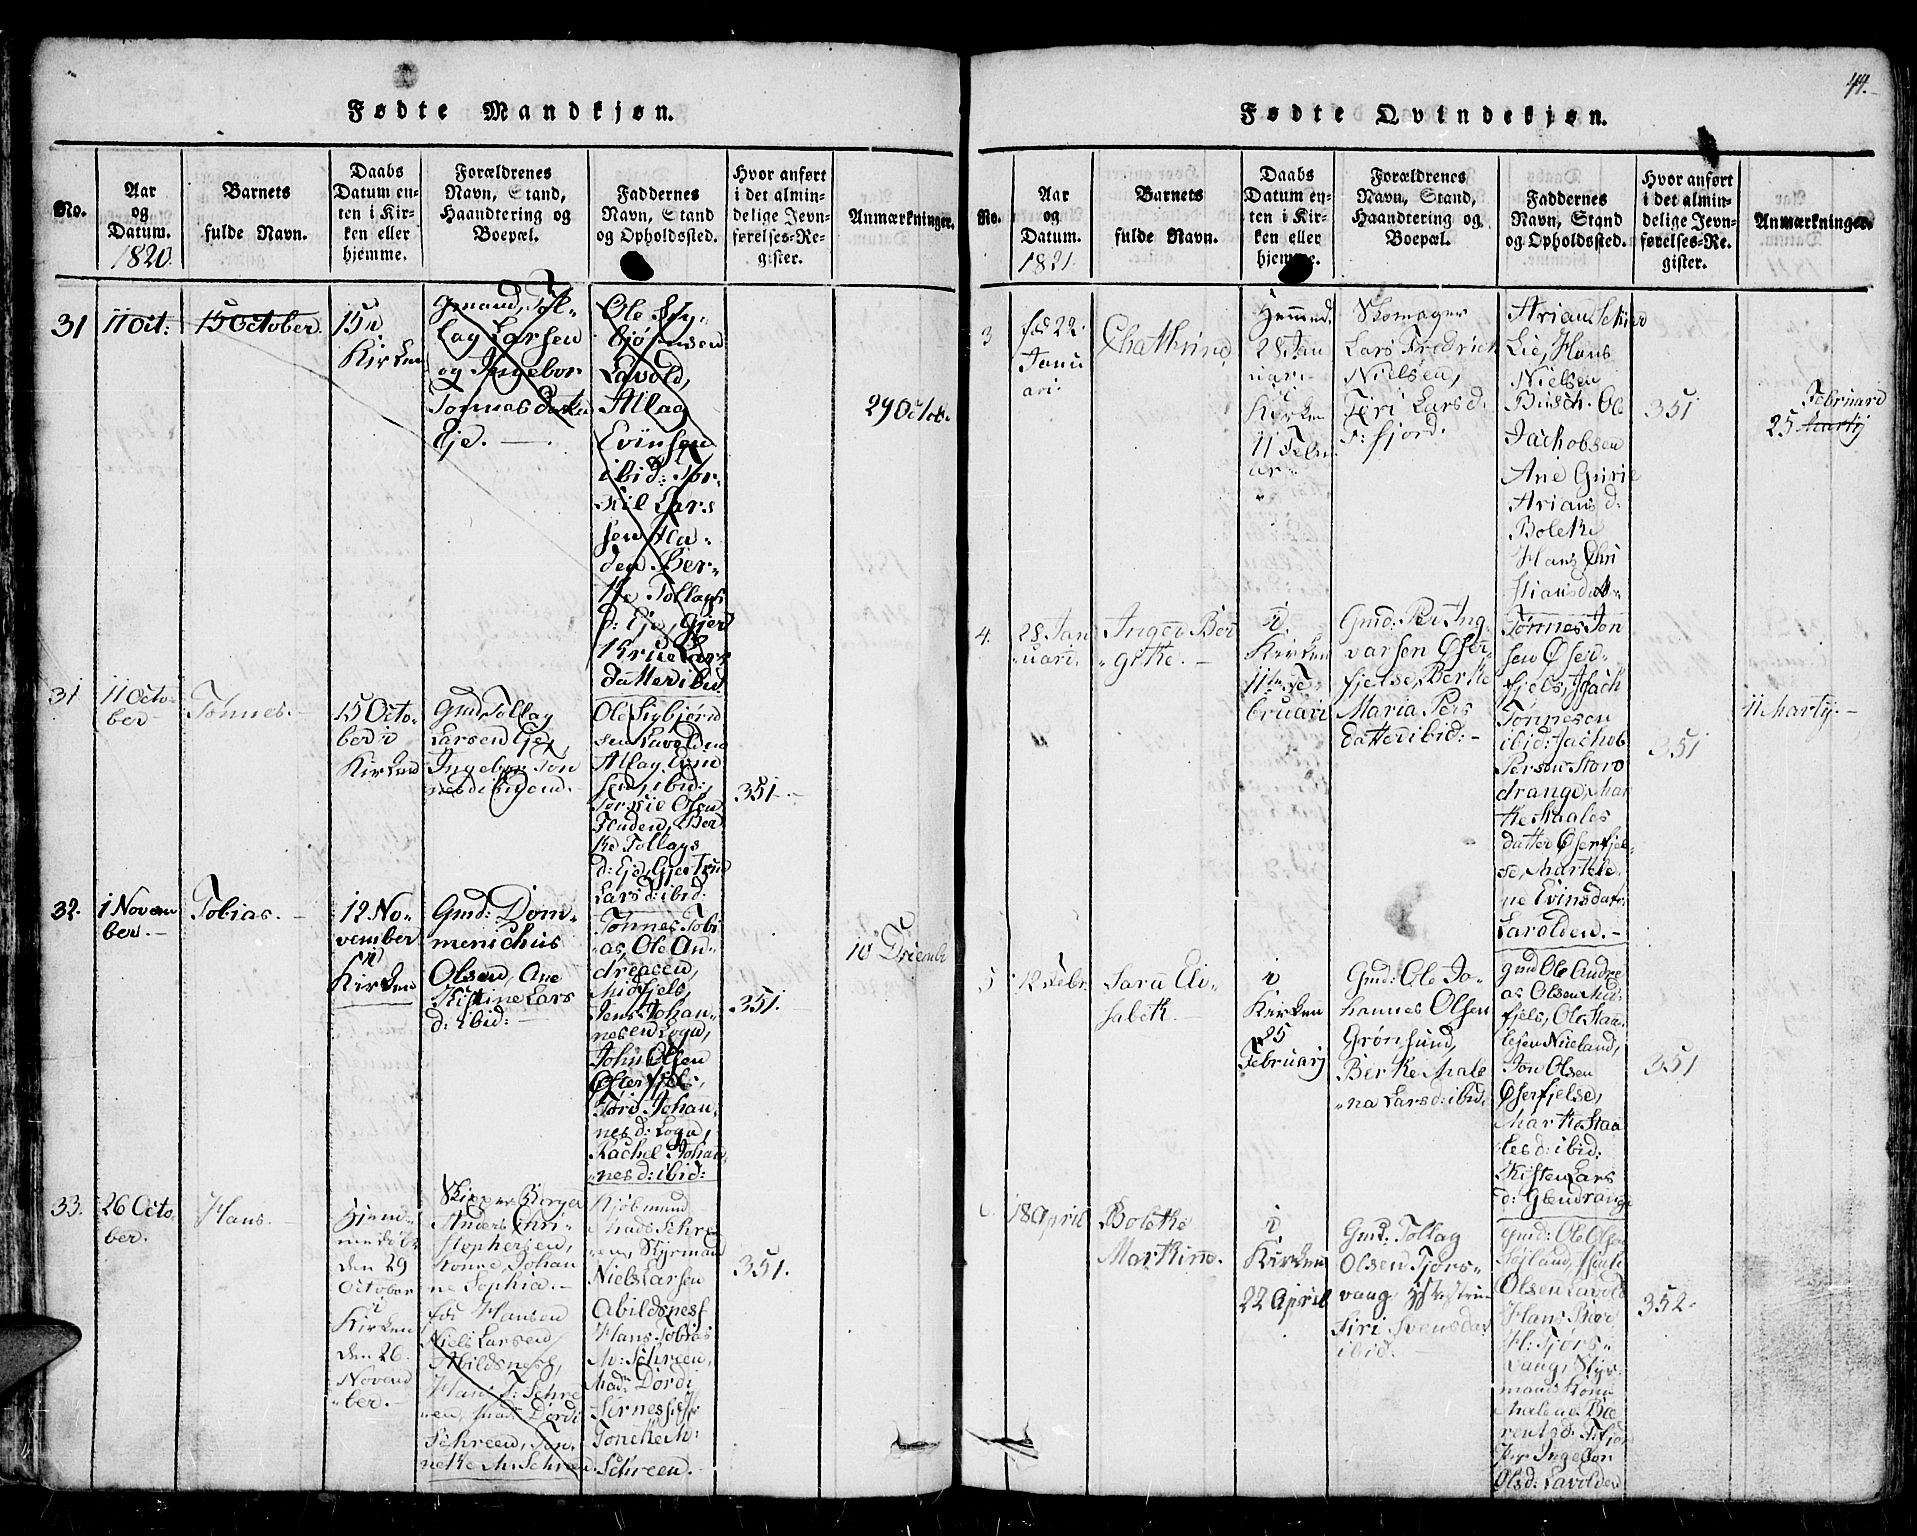 44.
Fødte Mandkjøn.
No.
Aar
og
Datum.
1820.
Barnets
fulde Navn.
Daabs
Datum en-
ten i Kir-
ken eller
hjemme.
Forældrenes
Navn, Stand,
Haandtering og
Boepæl.
Faddernes
Navn, Stand
og Opholdssted.
Hvor anført
i det almin-
delige Jevn-
førelses-Re-
gister.
Anmærkninger.
31
11 Oct:
15 October.
15 i
Kirken
Gmand, Tol-
lag Larsen
og Ingebor
Tonnesdatter
Eje.
Ole Sig-
bjørnsen
Lavold,
Atlag
Evinsen
ibid: Tor-
kil Lars
sen Fla-
den, Ber-
the Tollags
d: Eje, Gjert
krue Lars
datter ibid
29 Octob.
31
11 Octo-
ber
Tonnes.
15 Octo-
ber i
Kirken
Gmd Tollag
Larsen Eje,
Ingebor Ton
nesd ibidem.
Ole Sigbjørn
sen Lavolden
Atlag Evin
sen, ibid:
Torkil Olsen
Fladen, Ber
the Tollags
d: Eje, Gjertrud
Lars d: ibid:
351.
32.
1 Novem
ber.
Tobias.
12 No-
vember
i
Kirken
Gmd: Dom-
menichus
Olsen, Ane
Kistine Lars
d: ibid:
Tonnes Tobi
as, Ole An-
dreasen,
Midfjels,
Jens Johan-
nesen Logn,
John Olsen
Østerfjels,
Tori Johan-
nes d: Logn,
Rachel Johan
nes d: ibid:
351.
10 Decembr
33.
26 Octo-
ber.
Hans.
Hjem-
medøbt
den 29
October
i
Kirken
den 26.
Novem
ber.
Skipper Borger
Anders Chri-
stophersen,
Kone, Johan
ne Sophia.
fød Hansen
Niels Larsen
Abildsnes,
Hans T: Schre
en, Mad: Dordi
Schreen, Ton-
neke M: Schreen
Kjøbmand
Mads Schre
en, Styrmand
Niels Larsen
Abildsnes
Hans Tobias
M: Schreen,
Mad: Dordi
Toneke M:
Schreen.
351.
Fødte Qvindekjøn.
No.
Aar
og
Datum.
1821.
Barnets
fulde Navn.
Daabs
Datum en-
ten i Kir-
ken eller
hjemme.
Forældrenes
Navn, Stand,
Haandtering og
Boepæl.
Faddernes
Navn, Stand
og Opholdssted.
Hvor anført
i det almin-
delige Jevn-
førelses-Re-
gister.
Anmærkninger.
3
fød 22
Janu
ari
Chathrine
Hjemmed.
28 Jan
uari
i
Kirken
11 Febru
ar
Skomager
Lars Fredrich
Nielsen,
Siri Lars d.
F: fjord.
Arian
Lie, Hans
Nielsen
Busch. Ole
Jachobsen
Ane Gurie
Arians d:
Bolethe
Hans Chri
stiansdatr
351
Februari
25 Martij
4.
28 Jan
uari.
Inger Ber
githe.
i
Kirken
11te Fe-
bruari
Gmd: Per Ing-
varsen Øser-
fjelse, Berthe
Maria Pers
datter ibid:
Tønnes Jon
sen Øser-
fjels, Isach
Tønnesen
ibid: Jachob
Persen Store
drange, Mar
the Staales
datter Øserfjel-
se, Marthe
ne Evinsdatr:
Lavolden.
351
11 Martij.
5
12 Febr.
Sara Eli-
sabeth.
i
Kirken
25
Februarj
Gmd: Ole Jo-
hannes Olsen
Grønsund,
Berthe Male
na Lars d: ibid.
gmd Ole Andre
as Olsen Mid-
fjels, Ole Staa-
lesen Nieland,
Jon Olsen
Øserfjelse,
Marthe Staa
les d: ibid:
Kisten Lars
d: Glendrange
351
18 April
Bolethe
Marthine.
i
Kirken
22 April
Gmd. Tollag
Olsen Tjørs-
vaag
Siri Svensdat
ibid.
gmd: Ole Olsen
Føjland, Isach
Olsen Lavold
Hans Boed
H: Tjørs-
vaag, Styr-
mands Kone
Malene Be
rents d.
Per Ingebor
Olsd: Lavolden
352.